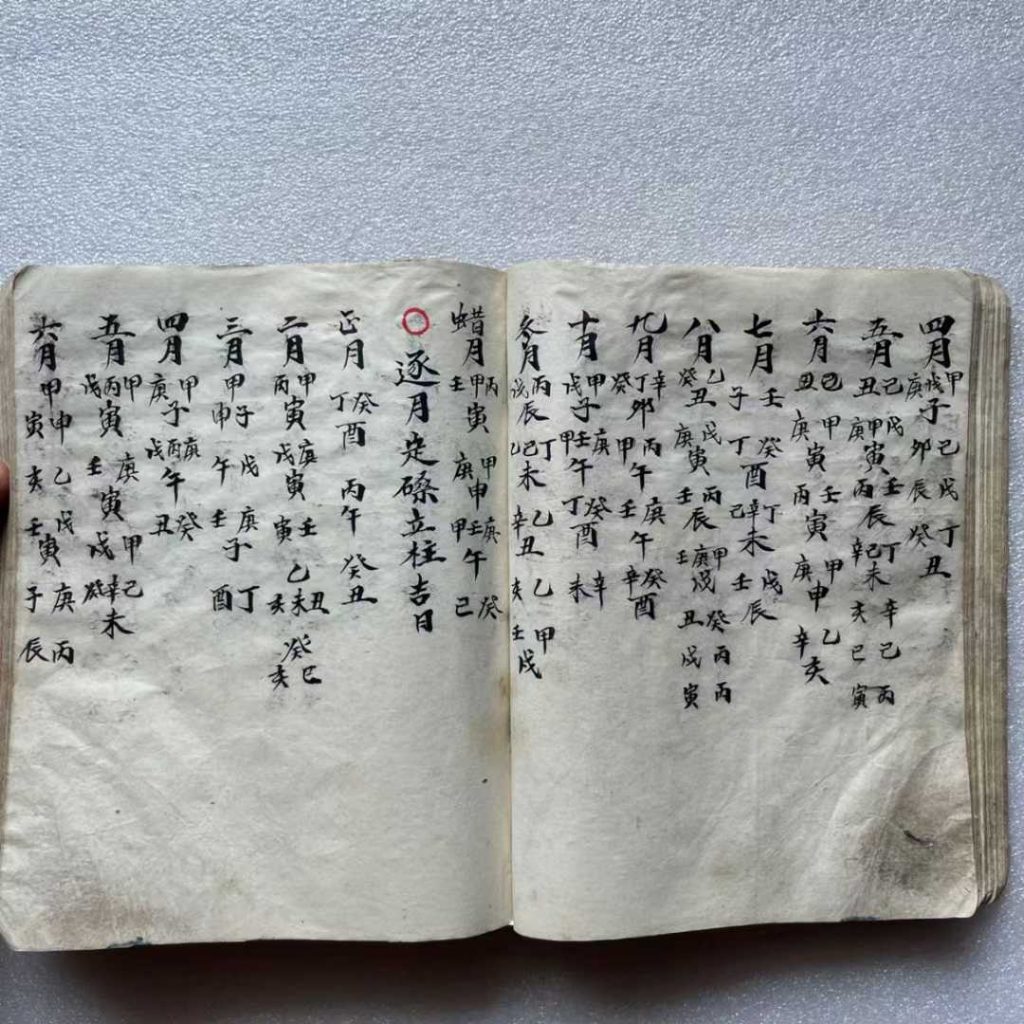 四月甲戊庚子己卯戊辰丁癸丑
五月己丑戊甲庚寅壬丙辰丁己辛未辛亥己巳丙寅
六月己丑甲庚寅壬丙寅甲庚申乙辛亥
七月壬子癸丁酉丁辛己未戊壬辰
八月乙癸丑戊庚寅丙壬辰甲庚壬戌癸丑丙戌丙寅
九月辛丁癸卯丙甲午庚壬午癸辛酉
十月甲戊子庚壬甲午癸丁酉辛未
冬月丙戊辰丁己乙未乙辛丑乙亥甲壬戌
蜡月丙甲壬寅甲庚申庚壬甲午癸巳
逐月定磉立柱吉日
正月癸丁酉丙午癸丑
二月甲丙寅庚戊寅壬寅乙丑未亥癸巳亥
三月甲子甲申戊午庚壬子丁酉
四月甲庚子庚丙戊午癸丑
五月甲丙戊寅庚壬寅甲戊己辛癸未
六月甲申甲寅乙亥戊壬寅庚子丙辰